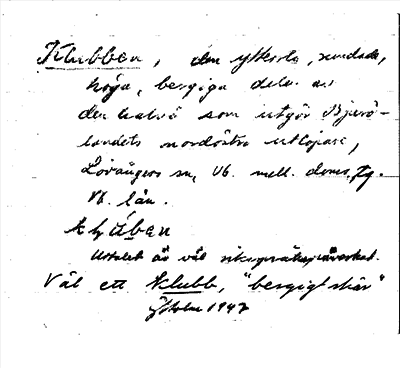 Klubben, den yttersta, rundade,
höga, bergiga delen av
den halvö som utgör Bjurö-
landets nordöstra utlöpare,
Lövångers sn, Vb. mell. doms.
Vb. län.
Uttalet är väl
Väl ett Klubb, "bergigt skär"
1947